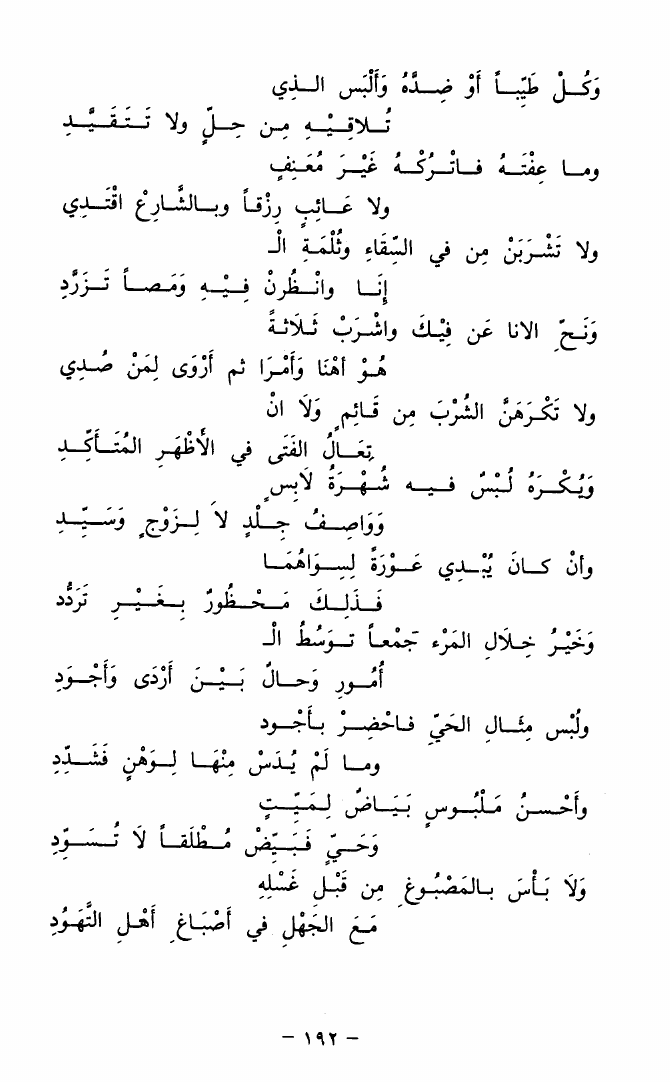 وَكُلْ طَيِّبـاً أَوْ ضِدَّهُ وَأَلْبَس الـذِي
تُـلاقِيْـهِ مِـن حِـلٍّ ولا تَـتَـقَـيَّـد
ومـا عِفْتَـهُ فـاتْرُكْـهُ غَيْـرَ مُعَنِـفٍ
ولا عَـائِبٍ رِزْقـاً وبـالشَّارِعْ اقْتَـدِي
ولا تَشْرَبَنْ مِن في السِّقَاءِ وثُلْمَـةِ الْـ
إِنَـا وانْـظُرنْ فِيْـهِ وَمَصـاً تَـزَرَّدِ
وَنَـحِّ الانا عَن فِيْـكَ واشْرَبْ ثَـلاَثـةً
هُـوْ أَهْنَا وَأَمْـرَا ثم أَرْوَى لِمَنْ صُـدِي
ولا تَكْـرَهَنَّ الشُّرْبَ مِن قَـائِمٍ وَلَا انْ
تِعَـالُ الفَتَى في الأَظْهَـرِ المُتَـأَكِّـد
وَيُـكْـرَهُ لُبْسٌ فـيـه شُـهْـرَةُ لَابِسٍ
وَوَاصِـفُ جِـلْدٍ لاَ لِـزَوْجٍ وَسَـيِّـدِ
وأنْ كـانَ يُبْـدِي عَـوْرَةً لِسِـوَاهُمَـا
فَـذَلِـكَ مَـحْـظُورٌ بِـغَيْـرِ تَرَدُّد
وَخَيْـرُ خِـلَالِ المَرْءِ جَمْعـاً تَـوَسُّطُ الْـ
أُمُـورِ وَحـالٌ بَـيْـنَ أَرْدَى وَأَجْـوَدِ
ولُبْس مِثَـالِ الحَيِّ فـاحْضِـرْ بـأَجْـودِ
ومـا لَمْ يُـدَسْ مِنْهَـا لِـوَهْنٍ فَشَـدِّدِ
وأَحْـسَـنُ مَلْبُـوسٍ بَيَـاضٌ لِـمَيِّـتٍ
وَحَـيٍّ فَـبَيِّضْ مُـطْلَقـاً لاَ تُـسَـوِّدِ
وَلَا بَـأْسَ بـالمَصْبُـوغِ مِن قَبْـلِ غَسْلِهِ
مَـعَ الجَهْلِ في أَصْبَاغِ أَهْـلِ التَّهَوُّدِ
- ١٩٢ -